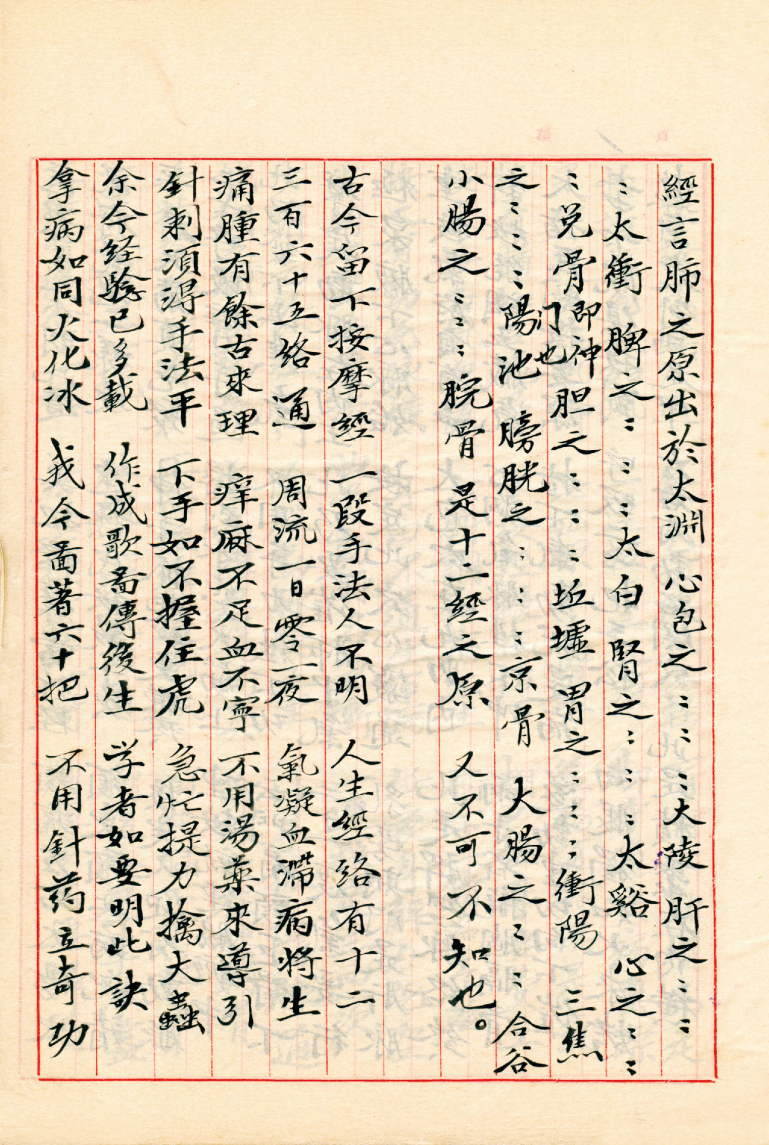 經言肺之原出於太淵 心包之：：：大陵 肝之：：
：太衝 脾之：：：太白 腎之：：：太谿 心之：：
：兌骨即神门也 胆之：：：坵墟 胃之：：：衝陽 三焦
之：：：陽池 膀胱之：：：京骨 大腸之：：合谷
小腸之：：：腕骨 是十二經之原 又不可不知也。
古今留下按摩經 一段手法人不明 人生經络有十二
三百六十五络通 周流一日零一夜 氣凝血滯病将生
痛腫有餘古來理 痒麻不足血不寧 不用湯藥來導引
針刺須得手法平 下手如不握住虎 急忙提力擒大蟲
余今经驗已多載 作成歌啚傳後生 学者如要明此訣
拿病如同火化冰 我今啚著六十把 不用針药立奇功